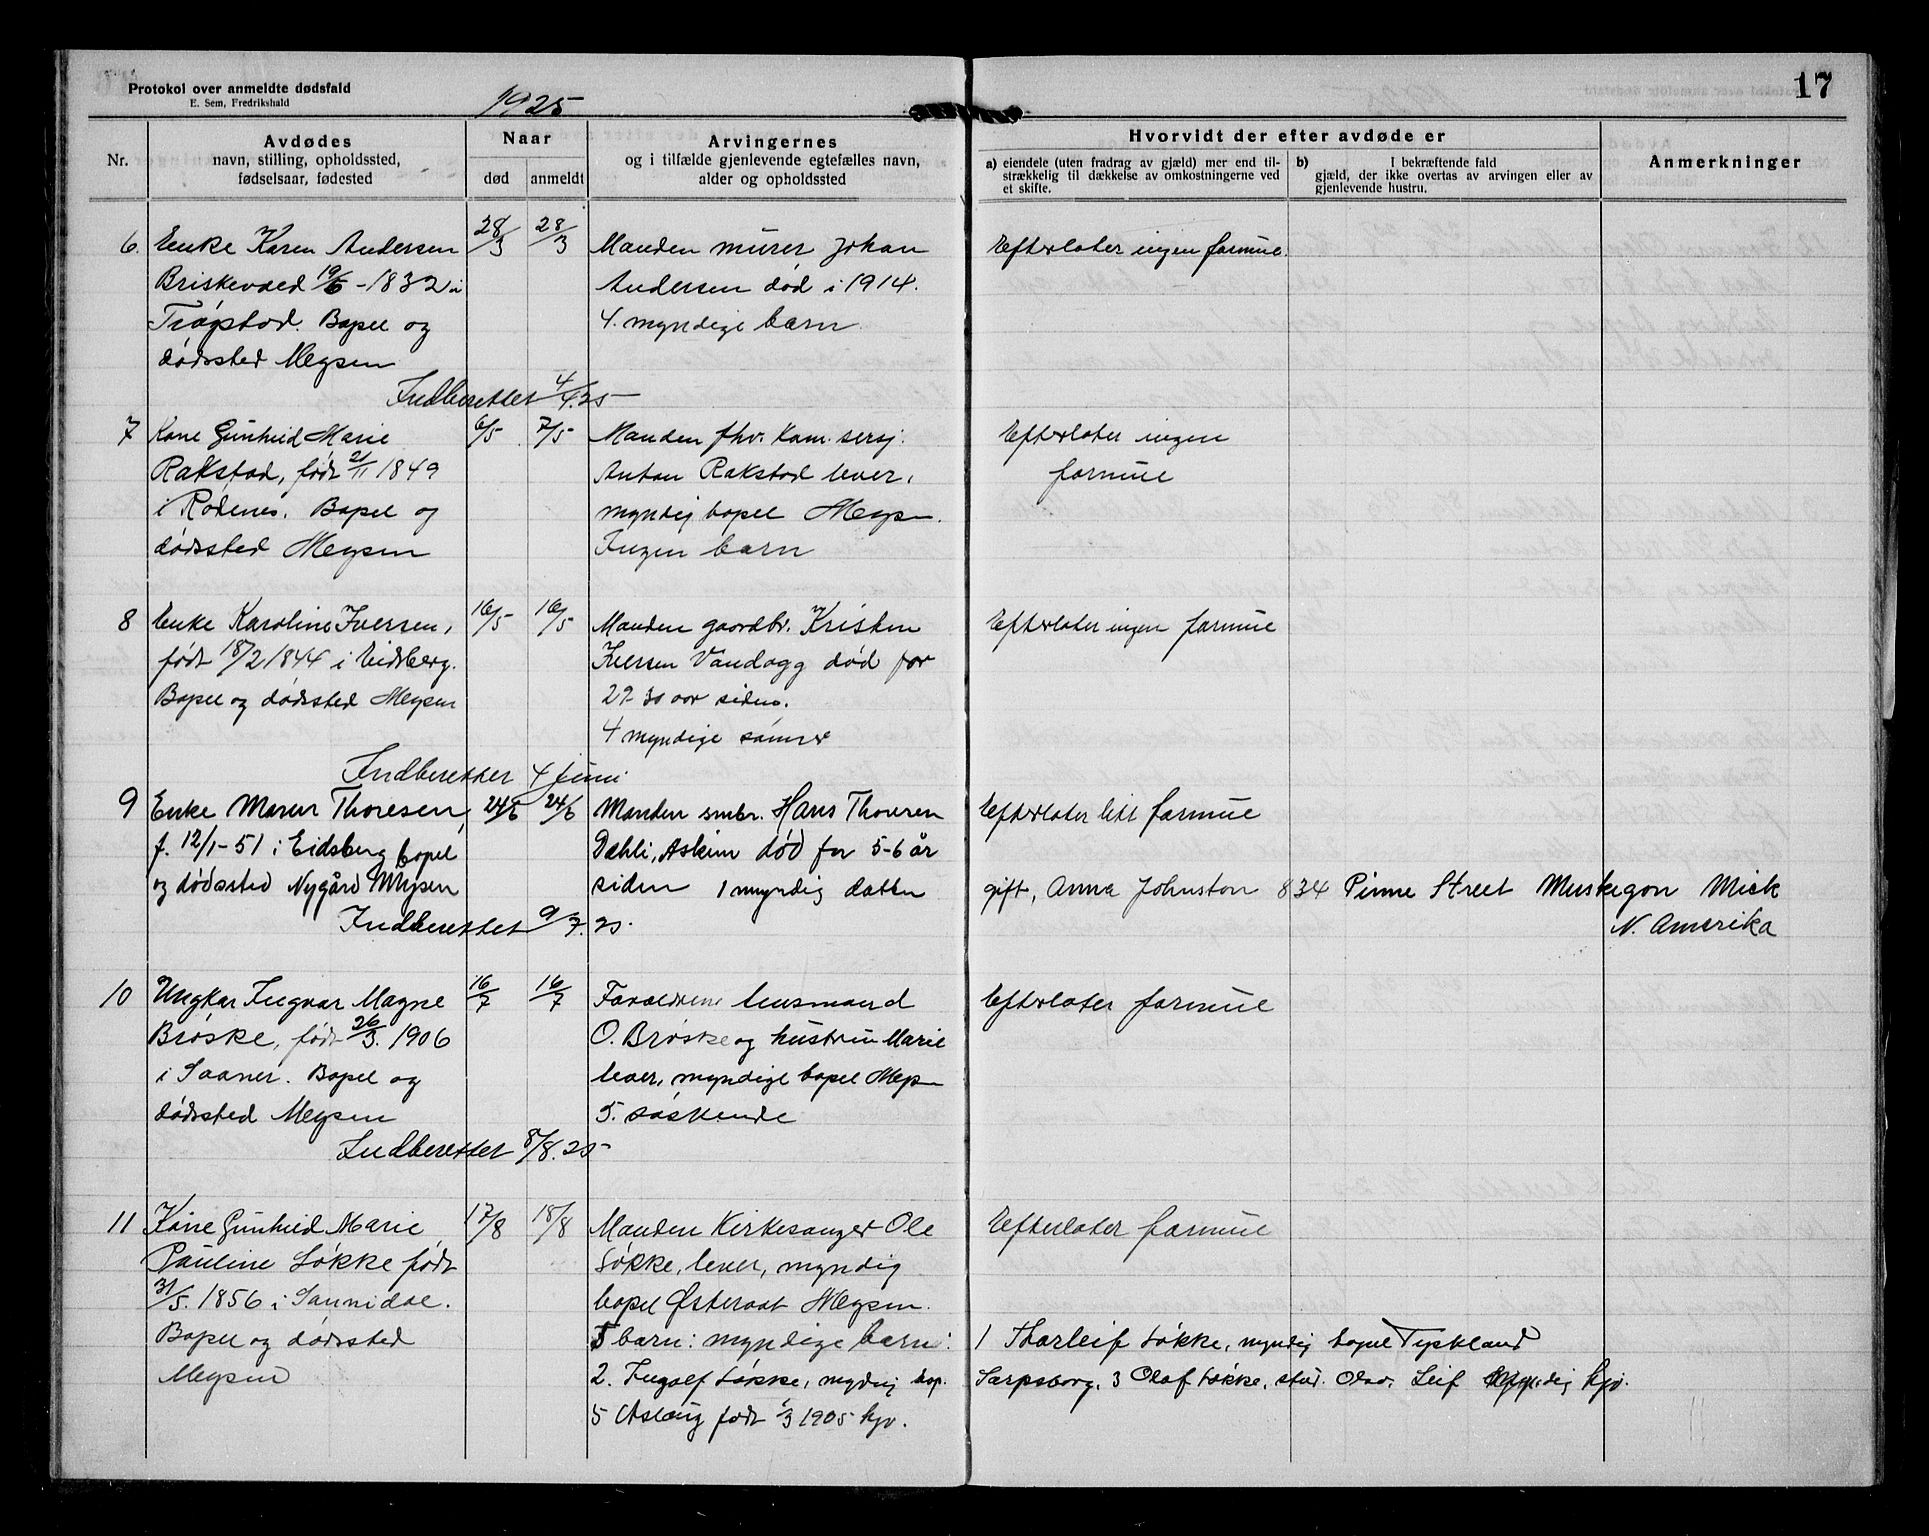 Protokol over anmeldte dødsfald
E. Sem, Fredrikshald
1925
17
Nr.
Avdødes
navn, stilling, opholdssted,
fødselsaar, fødested
Naar
død
anmeldt
Arvingernes
og i tilfælde gjenlevende egtefælles navn,
alder og opholdssted
Hvorvidt der efter avdøde er
a) eiendele (uten fradrag av gjæld) mer end til-
strækkelig til dækkelse av omkostningerne ved
et skifte.
b) I bekræftende fald
gjæld, der ikke overtas av arvingen eller av
gjenlevende hustru.
Anmerkninger
6. Enke Karen Andersen 28/3 28/3 Manden murer Johan Efterlater ingen formue.
19/6 - 1832 i Andersen død i 1914.
Trøgstad. Bopel og 4. myndige barn
dødssted Mysen
Indberettet 4/4.25
7 Kone Gunhild Marie 6/5 7/5 Manden fhv. Kom. sersj. Efterlater ingen
Rakstad, født 2/11 1849 Anton Rakstad lever, formue
i Rødenes. Bopel og myndig bopel Mysen.
dødssted Mysen Ingen barn
8 Enke Karoline Iversen, 16/5 16/5 Manden gaardbr. Kristen Efterlater ingen formue
født 18/2 1844 i Eidsberg. Iversen død for
Bopel og dødssted Mysen 29-30 aar siden.
4 myndige sønner
Indberettet 4 juni
9 Enke Maren Thoresen, 24/6 24/6 Manden smbr. Hans Thoresen Efterlater litt formue
f. 12/1-51 i Eidsberg bopel Dæhli, Askim død for 5-6 år
og dødssted Nygård Mysen siden 1 myndig datter gift, Anna Johnston 834 Pinne Street Muskegon Mich
Indberettet 9/7.25. N. Amerika
10 Ungkar Ingvar Magne 16/7 16/7 Forældrene husmand Efterlater formue
Brøske, født 26/3. 1906 O. Brøske og hustru Marie
i Saaner. Bopel og lever, myndige bopel Mysen
dødssted Mysen 5. søskende
Indberettet 8/8.25
11 Kone Gunhild Marie 17/8 18/8 Manden Kirkesanger Ole Efterlater formue
Pauline Løkke født Løkke, lever, myndig
31/5. 1856 i Sannidal. bopel Østeraat Mysen.
Bopel og dødssted 5 barn: myndige barn: 1 Thorleif Løkke, myndig bopel Tyskland
Mysen 2. Ingolf Løkke, myndig bop. Sarpsborg, 3 Olaf Løkke, stud. Oslo, Leif myndig hjv.
5 Aslaug født 1/3 1905 hjv.